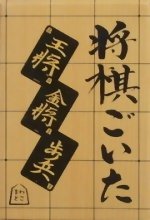 将棋ごいた
王将
金将
歩兵